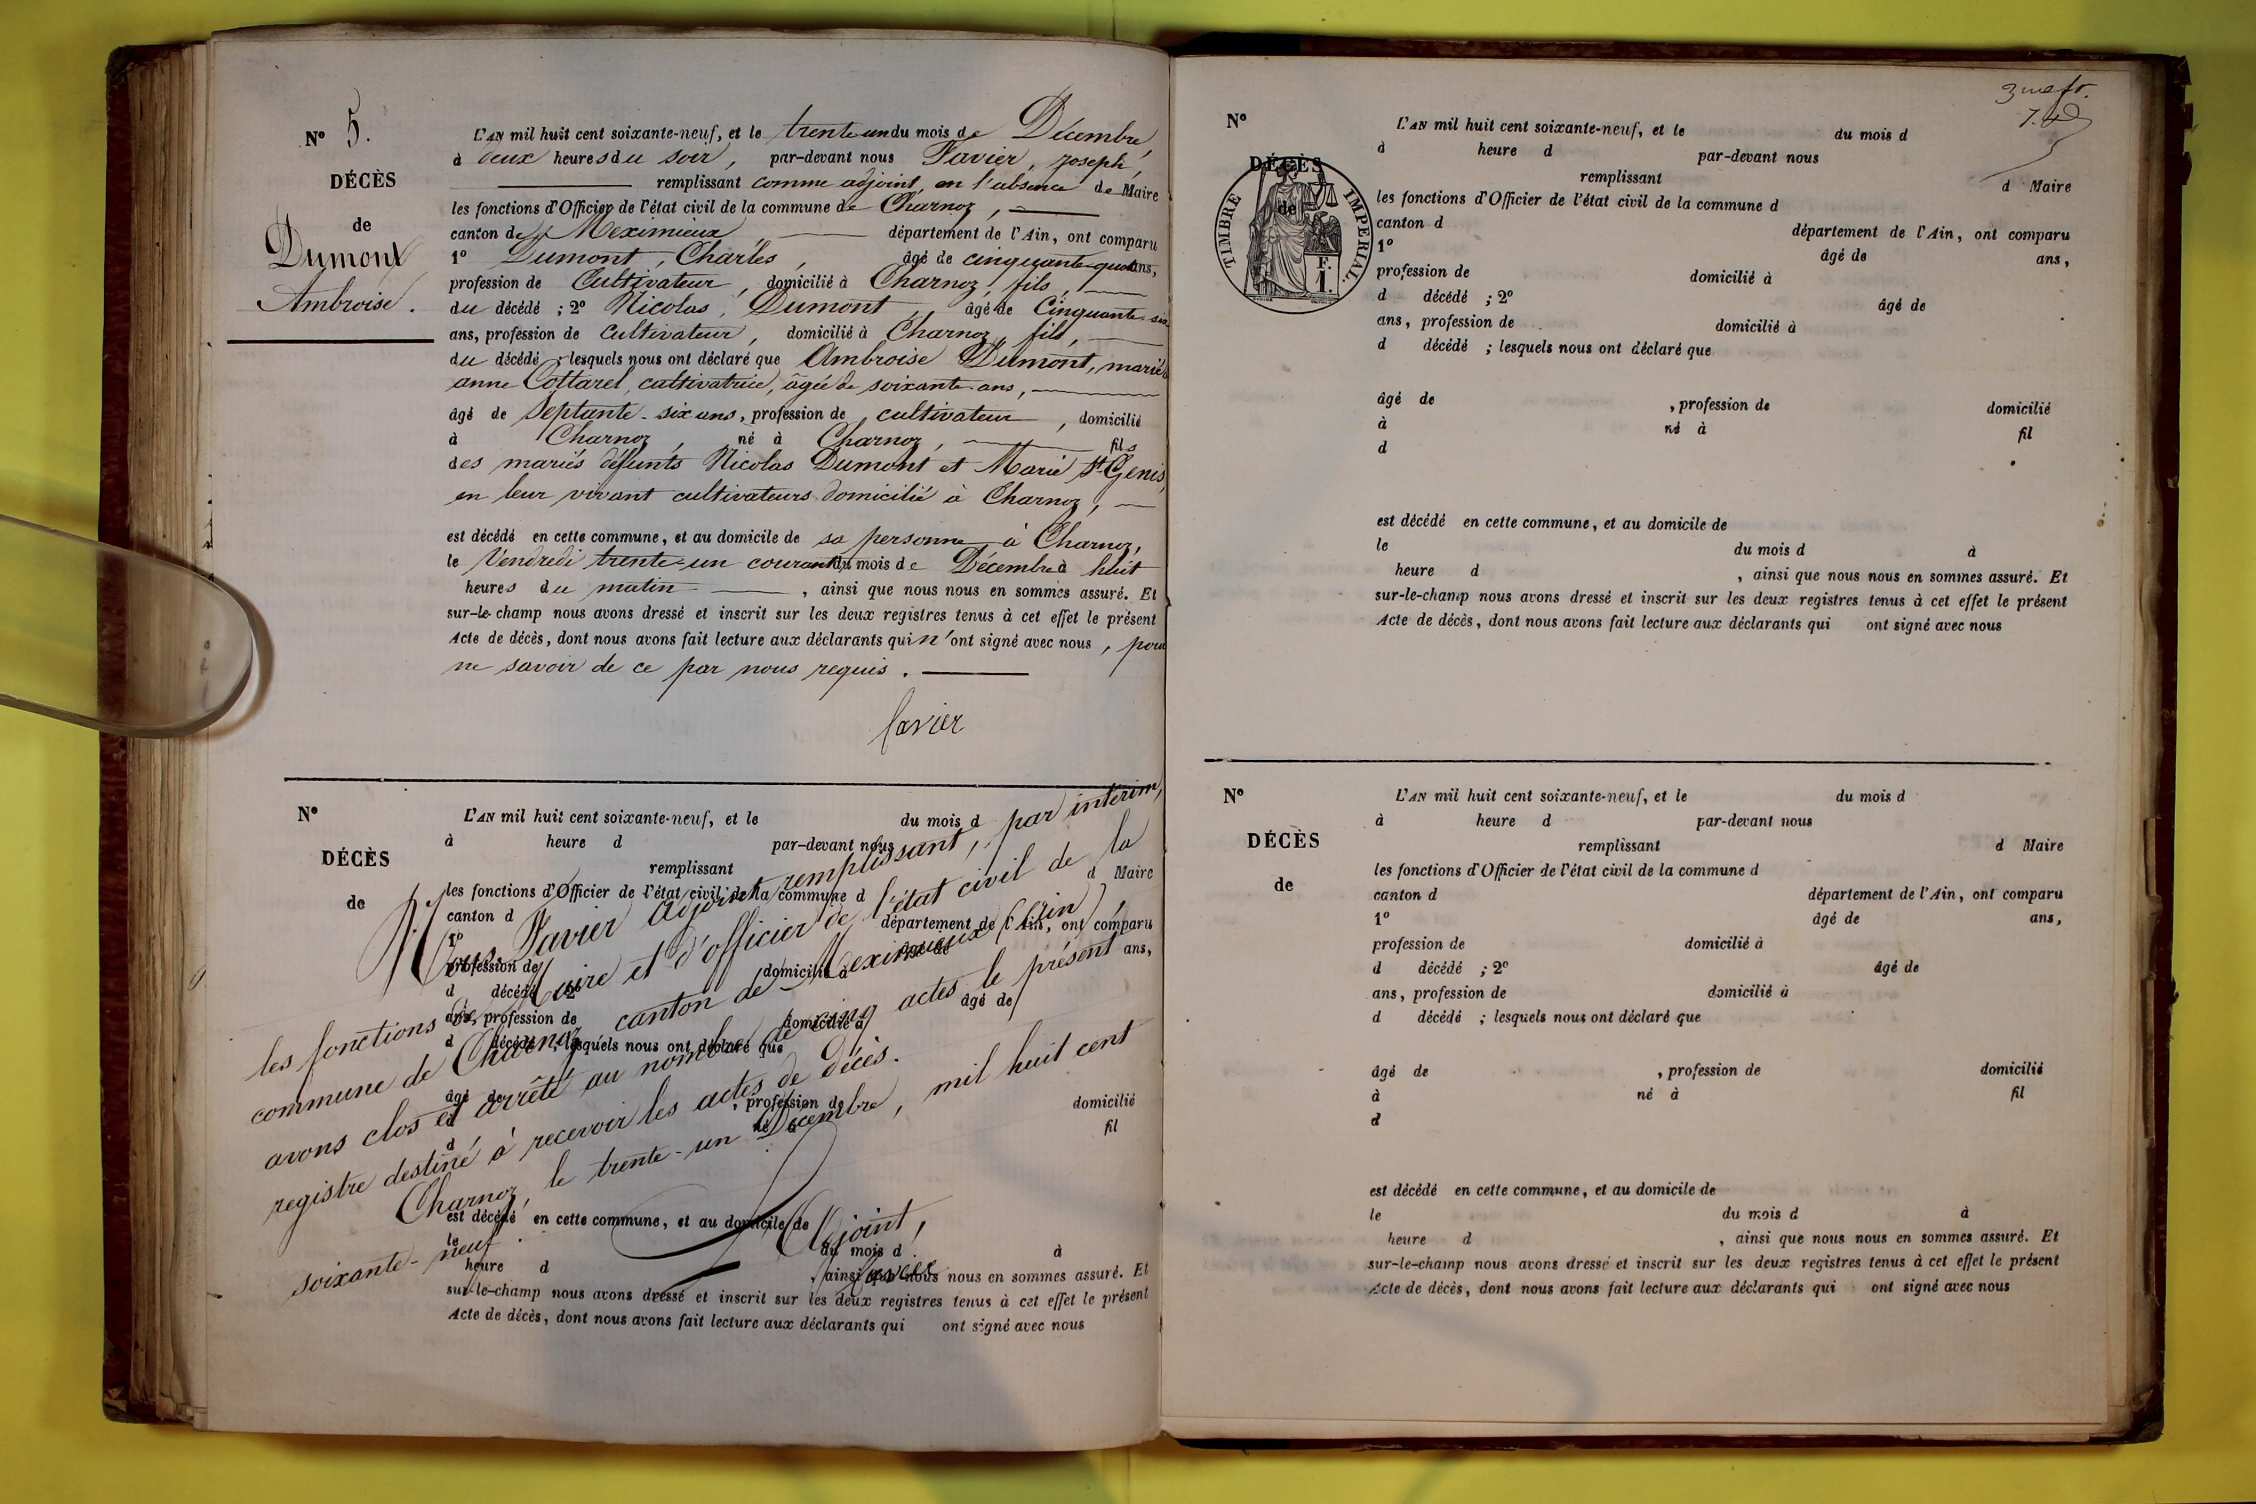 N° 5.
DÉCÈS
de
Dumont
Ambroise.
L'AN mil huit cent soixante-neuf, et le trente un du mois de Décembre,
à deux heures du soir, par-devant nous Favier, Joseph,
remplissant comme adjoint, en l'absence de Maire
les fonctions d'Officier de l'état civil de la commune de Charnoz,
canton de Meximieux, département de l'Ain, ont comparu
1° Dumont, Charles, âgé de cinquante-quatre ans,
profession de Cultivateur, domicilié à Charnoz, fils,
du décédé ; 2° Nicolas, Dumont, âgé de Cinquante-six
ans, profession de cultivateur, domicilié à Charnoz, fils,
du décédé ; lesquels nous ont déclaré que Ambroise Dumont, marié à
anne Cottarel, cultivatrice, âgée de soixante ans,
âgé de septante-six ans, profession de cultivateur, domicilié
à Charnoz, né à Charnoz, fils
des mariés défunts Nicolas Dumont et Marie St Genis,
en leur vivant cultivateurs domicilié à Charnoz,
est décédé en cette commune, et au domicile de sa personne à Charnoz,
le Vendredi trente-un courant du mois de Décembre à huit
heures du matin, ainsi que nous nous en sommes assuré. Et
sur-le-champ nous avons dressé et inscrit sur les deux registres tenus à cet effet le présent
Acte de décès, dont nous avons fait lecture aux déclarants qui n'ont signé avec nous, pour
ne savoir de ce par nous requis.
Favier
N°
DÉCÈS
de
L'AN mil huit cent soixante-neuf, et le du mois d
à heure d par-devant nous
remplissant d Maire
les fonctions d'Officier de l'état civil de la commune d
canton d département de l'Ain, ont comparu
1° âgé de ans,
profession de domicilié à
d décédé ; 2° âgé de
ans, profession de domicilié à
d décédé ; lesquels nous ont déclaré que
âgé de , profession de domicilié
à né à fil
d
est décédé en cette commune, et au domicile de
le du mois d à
heure d , ainsi que nous nous en sommes assuré. Et
sur-le-champ nous avons dressé et inscrit sur les deux registres tenus à cet effet le présent
Acte de décès, dont nous avons fait lecture aux déclarants qui ont signé avec nous
Nous Favier adjoint remplissant, par intérim,
les fonctions de Maire et d'officier de l'état civil de la
commune de Charnoz, canton de Meximieux (Ain),
avons clos et arrêté au nombre de cinq actes le présent
registre destiné à recevoir les actes de décès.
Charnoz, le trente-un Décembre, mil huit cent
soixante-neuf.
L'Adjoint,
Favier
7.
N°
DÉCÈS
de
TIMBRE IMPERIAL.
F.
1.
L'AN mil huit cent soixante-neuf, et le du mois d
à heure d par-devant nous
remplissant d Maire
les fonctions d'Officier de l'état civil de la commune d
canton d département de l'Ain, ont comparu
1° âgé de ans,
profession de domicilié à
d décédé ; 2° âgé de
ans, profession de domicilié à
d décédé ; lesquels nous ont déclaré que
âgé de , profession de domicilié
à né à fil
d
est décédé en cette commune, et au domicile de
le du mois d à
heure d , ainsi que nous nous en sommes assuré. Et
sur-le-champ nous avons dressé et inscrit sur les deux registres tenus à cet effet le présent
Acte de décès, dont nous avons fait lecture aux déclarants qui ont signé avec nous
N°
DÉCÈS
de
L'AN mil huit cent soixante-neuf, et le du mois d
à heure d par-devant nous
remplissant d Maire
les fonctions d'Officier de l'état civil de la commune d
canton d département de l'Ain, ont comparu
1° âgé de ans,
profession de domicilié à
d décédé ; 2° âgé de
ans, profession de domicilié à
d décédé ; lesquels nous ont déclaré que
âgé de , profession de domicilié
à né à fil
d
est décédé en cette commune, et au domicile de
le du mois d à
heure d , ainsi que nous nous en sommes assuré. Et
sur-le-champ nous avons dressé et inscrit sur les deux registres tenus à cet effet le présent
Acte de décès, dont nous avons fait lecture aux déclarants qui ont signé avec nous